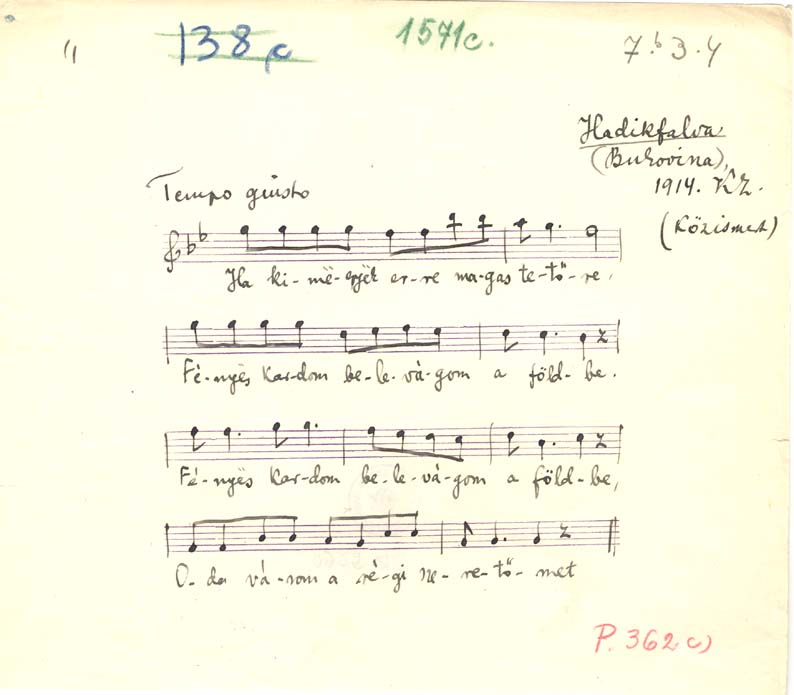 138c
1571c.
7. b3. 4
Hadikfalva
(Bukovina),
1914. KZ.
(Közismert)
Tempo giusto
Ha ki-më-gyëk er-re ma-gas te-tő-re,
Fé-nyës kar-dom be-le-vá-gom a föld-be.
Fé-nyës kar-dom be-le-vá-gom a föld-be,
O-da vá-rom a ré-gi sze-re-tő-met
P. 362 c)